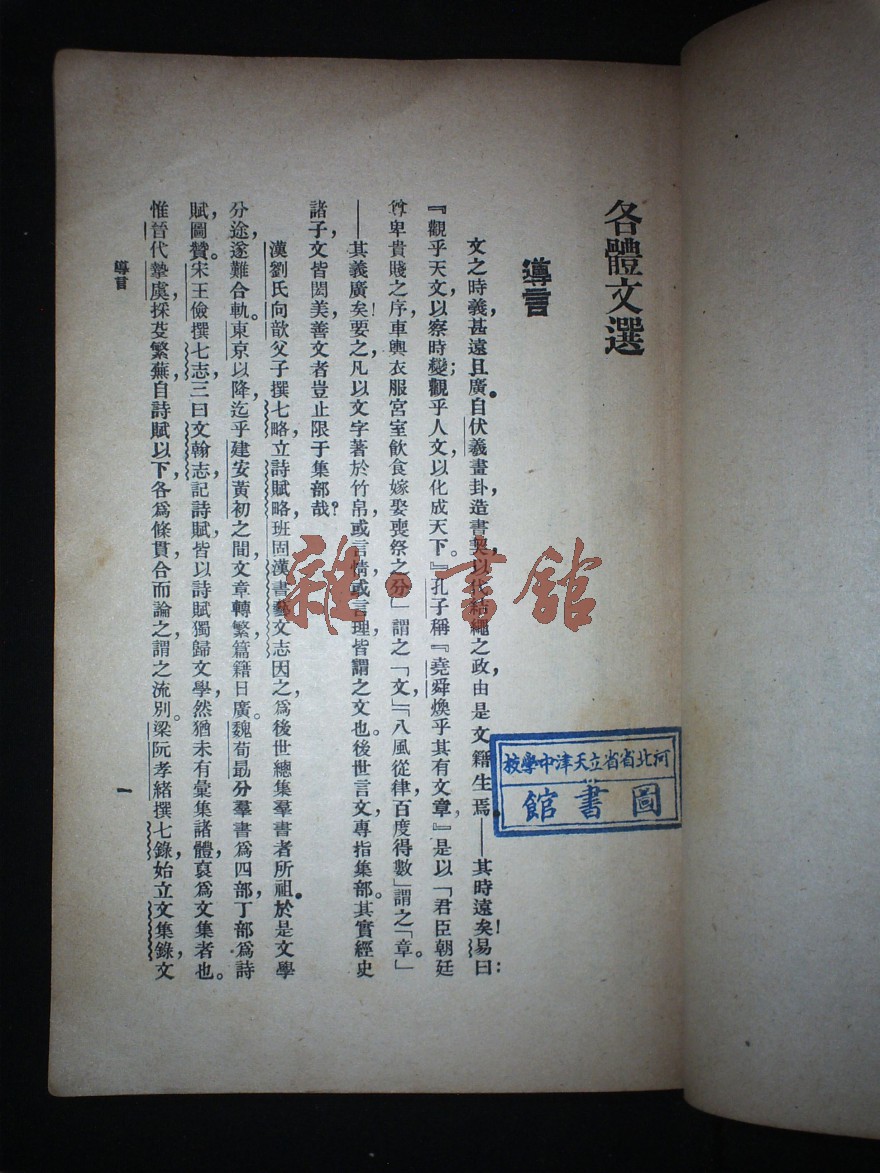 各體文選
導言
文之時義甚遠且廣。自伏羲畫卦，造書契，以代結繩之政，由是文籍生焉。——其時遠矣！易曰：
『觀乎天文，以察時變；觀乎人文，以化成天下。』孔子稱『堯舜煥乎其有文章，』是以「君臣朝廷
尊卑貴賤之序，車輿衣服宮室飲食嫁娶喪祭之分」謂之「文，」「八風從律，百度得數」謂之「章。」
——其義廣矣！要之，凡以文字著於竹帛，或言情，或言理，皆謂之文也。後世言文，專指集部。其實經史
諸子，文皆閎美，善文者豈止限于集部哉？
漢劉氏向歆父子撰七略，立詩賦略，班固漢書藝文志因之，爲後世總集羣書者所祖。於是文學
分途，遂難合軌。東京以降，迄乎建安黃初之間，文章轉繁，篇籍日廣。魏荀勗分羣書爲四部，丁部爲詩
賦圖贊。宋王儉撰七志，三曰文翰志，記詩賦，皆以詩賦獨歸文學，然猶未有彙集諸體，裒爲文集者也。
惟晉代摯虞，採芟繁蕪，自詩賦以下，各爲條貫，合而論之，謂之流別。梁阮孝緒撰七錄，始立文集錄，文
導言
一
河北省省立天津中學校
圖書館
雜·書館